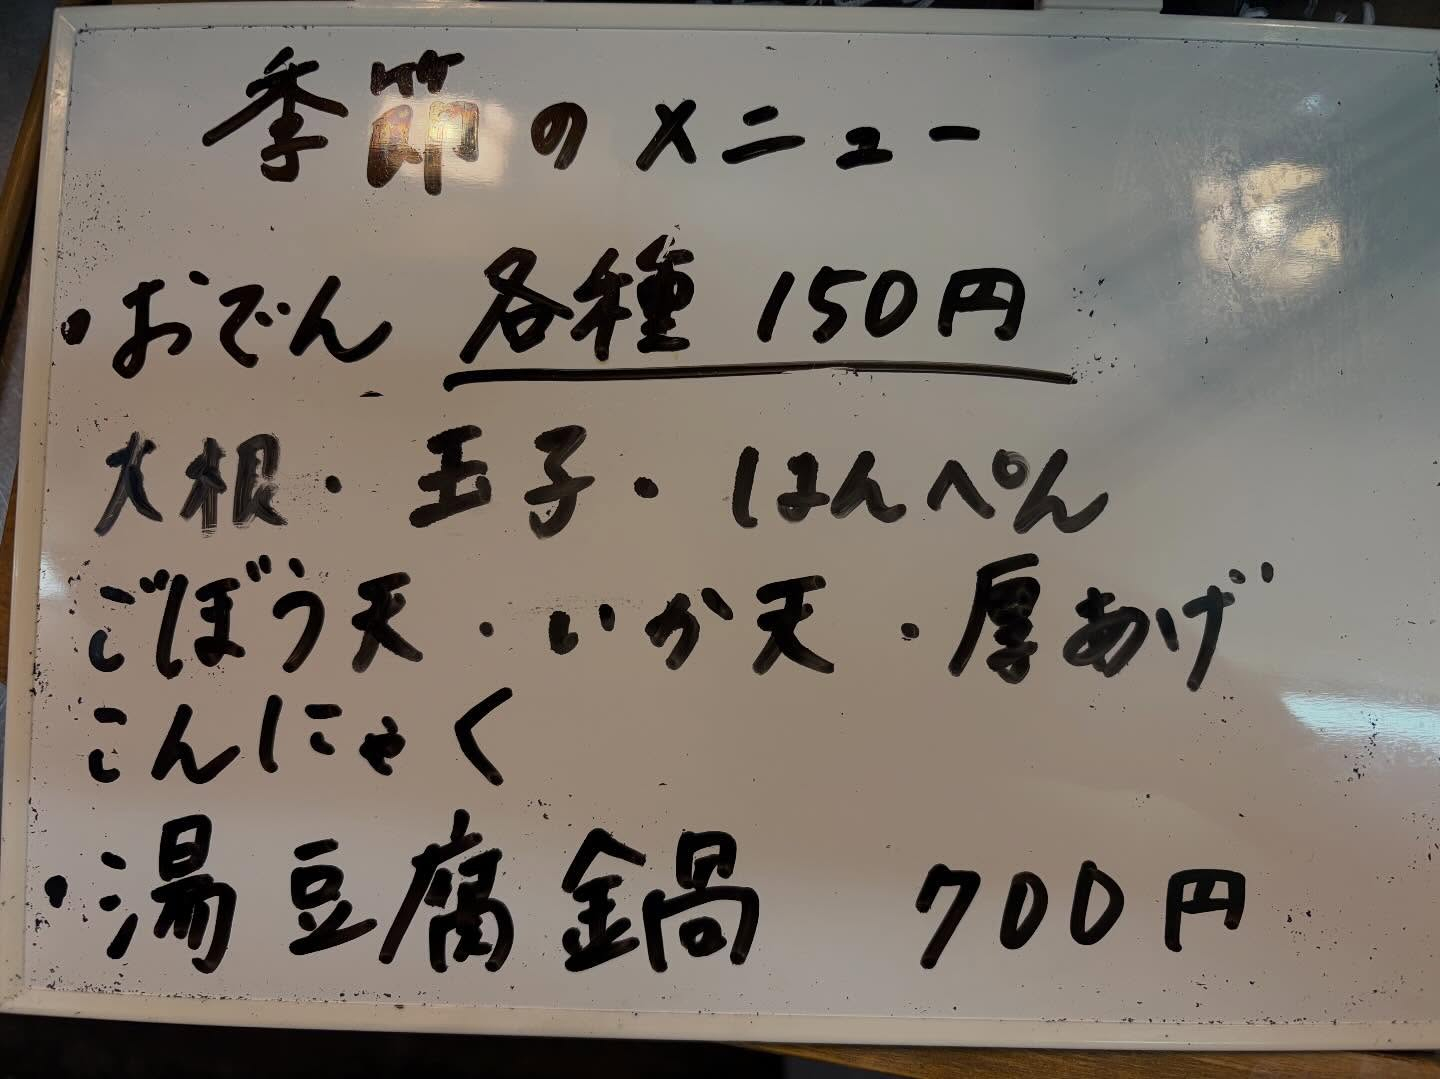 季節のメニュー
・おでん 各種 150円
大根・玉子・はんぺん
ごぼう天・いか天・厚あげ
こんにゃく
・湯豆腐鍋 700円